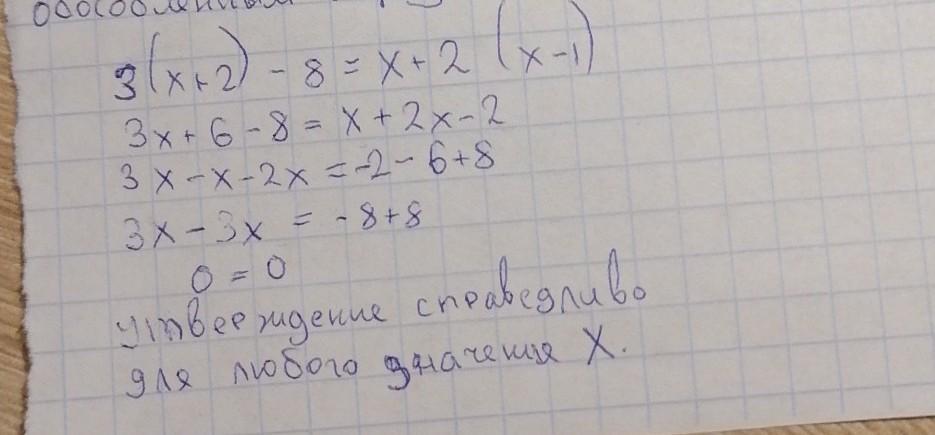 3(x+2) - 8 = x + 2 (x-1)
3x + 6 - 8 = x + 2x - 2
3x - x - 2x = -2 - 6 + 8
3x - 3x = - 8 + 8
0 = 0
утверждение справедливо
для любого значения X.